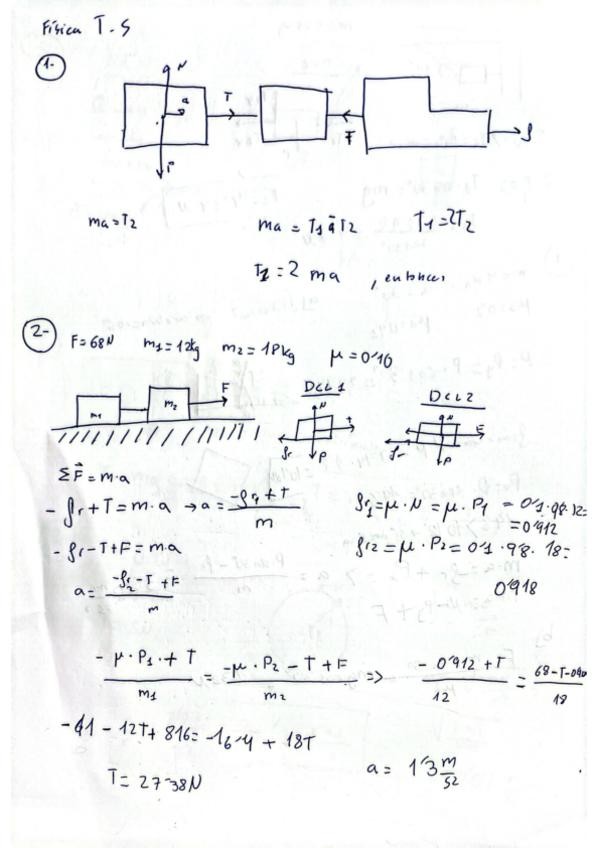 Física T.S
1-
N
a
T
F
f
P
ma=T2
ma = T1 T2
T1=2T2
T1=2 ma , entonces
2-
F=68N m1=12kg m2=18kg μ=0'10
DCL1
DCL2
m1 m2 F
N T fr P
N F fr P
ΣF=m·a
-fr+T=m·a → a= -fr+T / m
fr1=μ·N=μ·P1 =0'1·98·12=
=0'912
-fr-T+F=m·a
fr2=μ·P2=0'1·98·18=
0'918
a= -fr2-T+F / m
-μ·P1+T / m1 = -μ·P2-T+F / m2 => -0'912+T / 12 = 68-T-090 / 18
-12T+816=-16'4+18T
T=27'38N
a= 1'3 m/s2